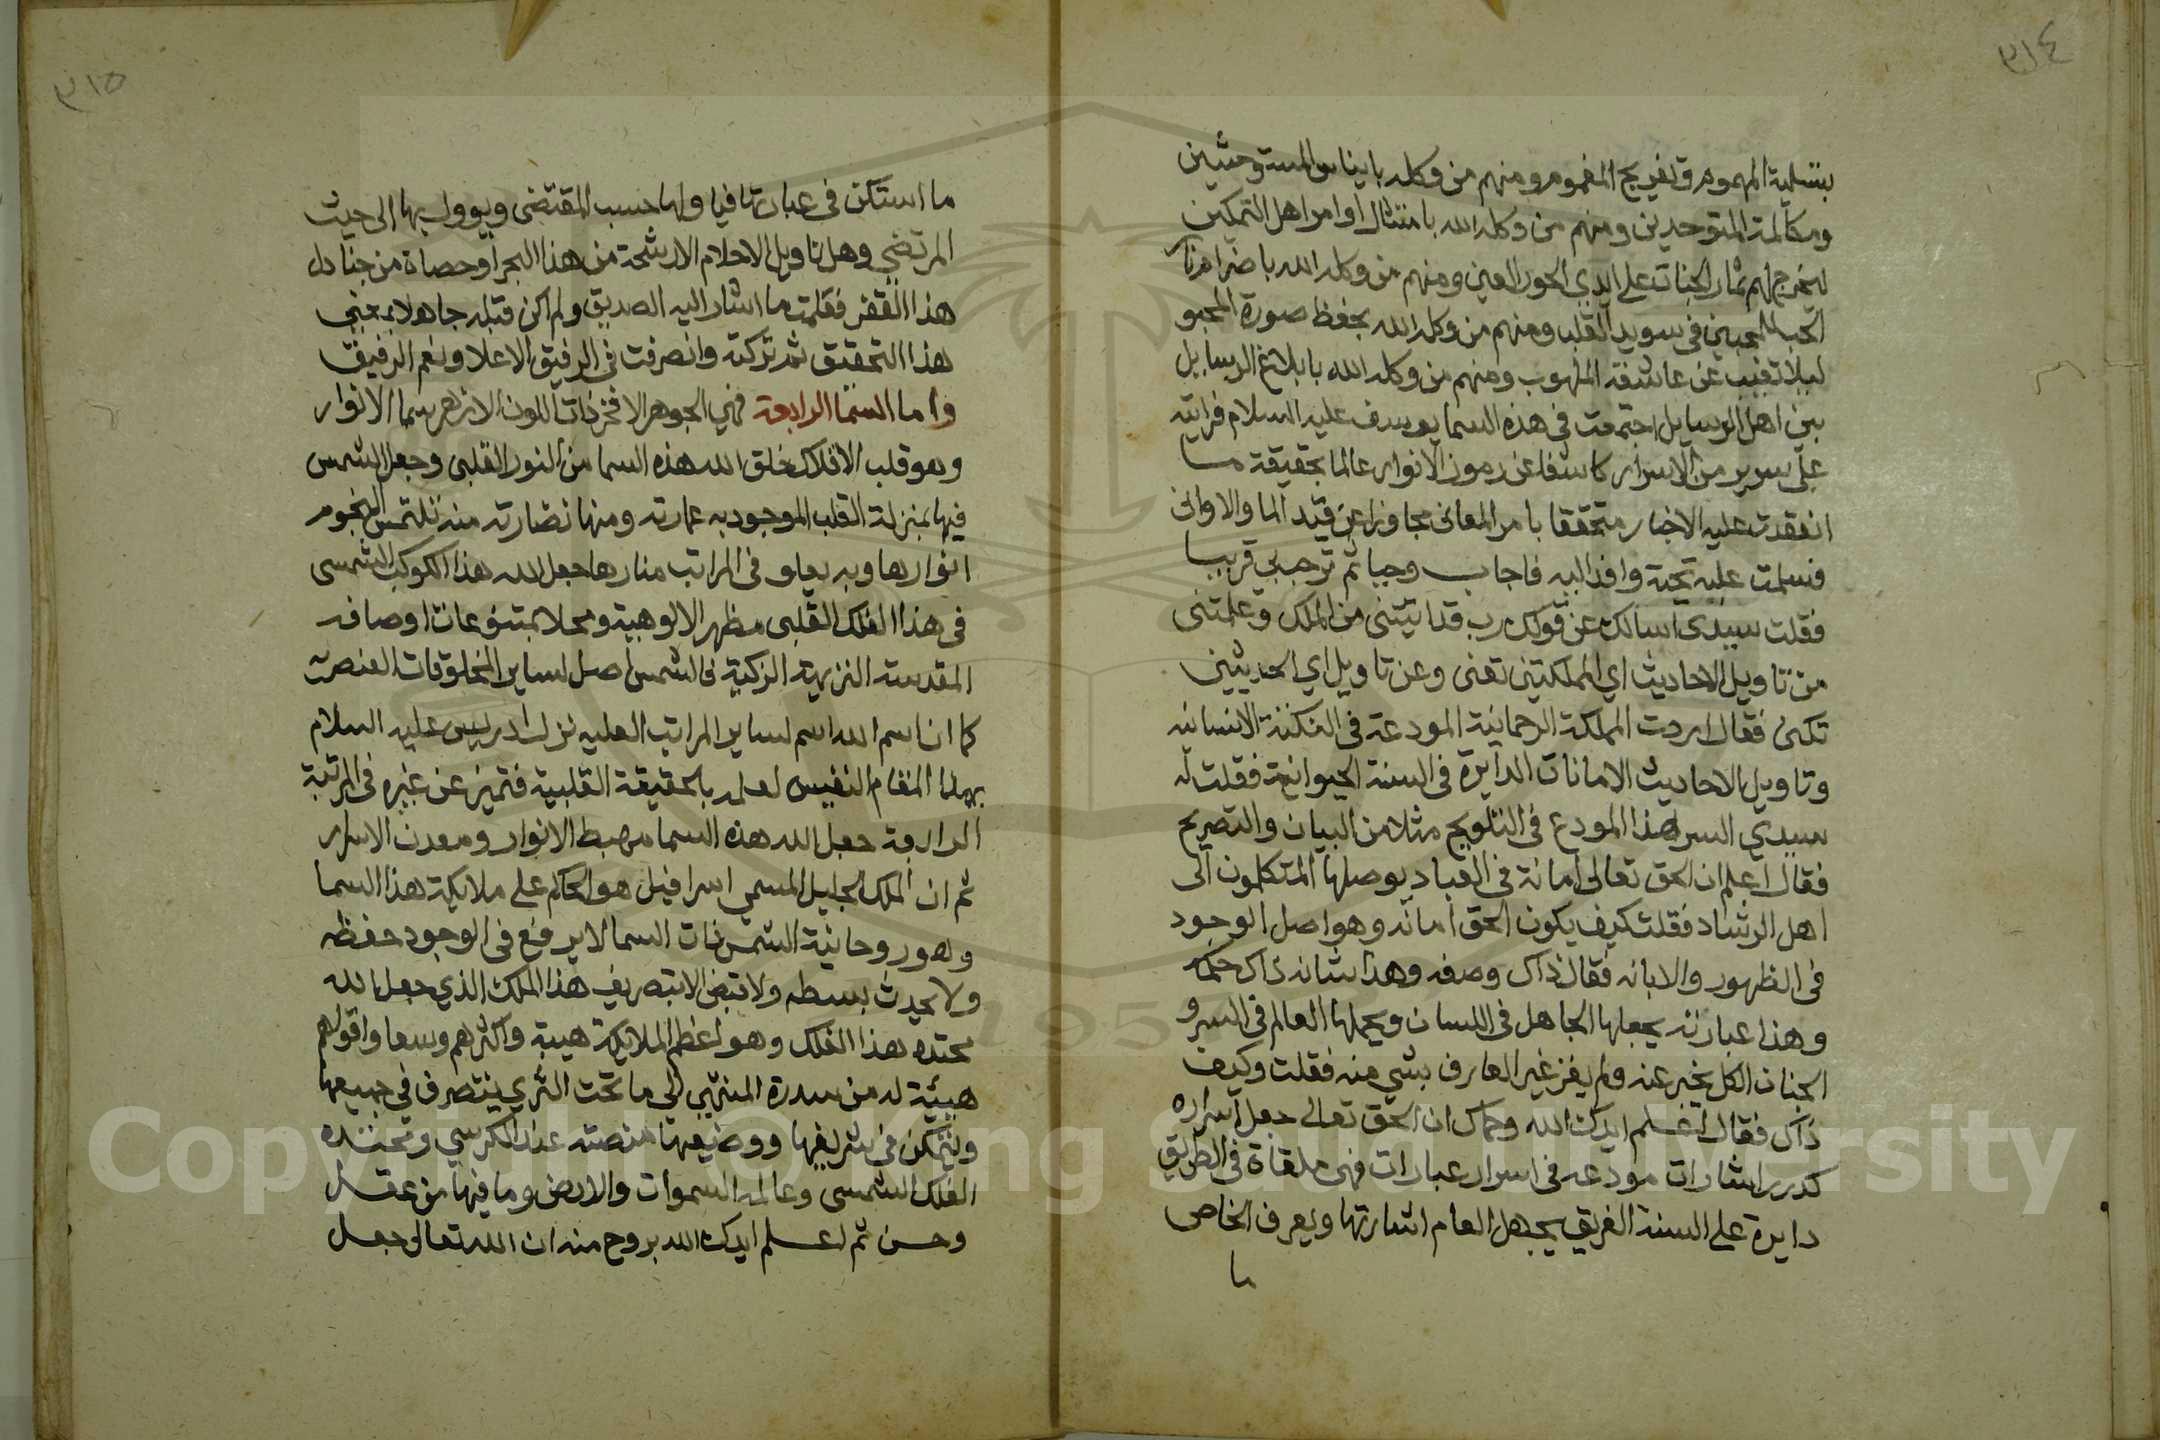 ٣١٤
بتسلية المهموم وتفريج المغموم ومنهم من وكله بايناس المستوحشين
ومكالمة المتوحدين ومنهم من وكله الله بامتثال اوامر اهل التمكين
ليخرج لهم ثمار الجنات على ايدي الحور العين ومنهم من وكله الله باضرام نار
الحب للمحبين في سويد القلب ومنهم من وكله الله بحفظ صورة المحبو
ليلا تغيب عن عاشقه الملهوب ومنهم من وكله الله بابلاغ الرسايل
بين اهل الوسايل اجتمعت في هذه السما بيوسف عليه السلام فرايته
على سرير من الاسرار كاشفا عن رموز الانوار عالما بحقيقة ما
انعقدت عليه الاحبار متحققا بامر المعاني مجاوزا عن قيد الما والاواني
فسلمت عليه تحية وافد اليه فاجاب وحيا ثم رحب بي وبيا
فقلت سيدي اسالك عن قولك رب قد اتيتني من الملك وعلمتني
من تاويل الاحاديث اي المملكتين تعني وعن تاويل اي الحديثين
تكني فقال اردت المملكة الرحمانية المودعة في النكتة الانسانيه
وتاويل الاحاديث الامانات الدايرة في السنة الحيوانية فقلت له
سيدي اليس هذا المودع في التلويح مثلا من البيان والتصريح
فقال اعلم ان للحق تعالى امانة في العباد يوصلها المتكلمون الى
اهل الرشاد فقلت كيف يكون للحق امانه وهو اصل الوجود
في الظهور والابانه فقال ذاك وصفه وهذا شانه ذاك حكمه
وهذا عبارته يجعلها الجاهل في اللسان ويحملها العالم في السر و
الجنان الكل يخبر عنه ولم يفز غير العارف بشي منه فقلت وكيف
ذاك فقال اعلم ايدك الله وحماك ان الحق تعالى جعل اسراره
كدرر اشارات مودعه في اسرار عبارات فهي ملقاة في الطريق
دايرة على السنة الفريق يجهل العام اشارتها ويعرف الخاص
ما
٣١٥
ما استكن في عبارتها فياولها حسب المقتضى ويوول بها الى حيث
المرتضي وهل تاويل الاحلام الا رشحة من هذا البحر او حصاة من جنادل
هذا القفر فعلمت ما اشار اليه الصديق ولم اكن قبله جاهلا بمعنى
هذا التحقيق ثم تركته وانصرفت في الرفيق الاعلا ونعم الرفيق
واما السما الرابعة فهي الجوهر الافخر ذات اللون الازهر سما الانوار
وهو قلب الافلاك خلق الله هذه السما من النور القلبي وجعل الشمس
فيها بمنزلة القلب للموجود به عمارته ومنها نضارته منه تلتمس النجوم
انوارها وبه يعلو في المراتب منارها جعل الله هذا الكوكب الشمسي
في هذا الفلك القلبي مظهر الالوهية ومجلا لمتنوعات اوصافه
المقدسة النزيهة الزكية فالشمس اصل لساير المخلوقات العنصرية
كما ان اسم الله اسم لساير المراتب العليه نزل ادريس عليه السلام
بهذا المقام النفيس لعلمه بالحقيقة القلبية فتميز عن غيره في الرتبة
الرابعة جعل الله هذه السما مهبط الانوار ومعدن الاسرار
ثم ان الملك الجليل المسمي اسرافيل هو الحاكم على ملايكة هذا السما
وهو روحانية الشمس ذات السما لا يرفع في الوجود حفظه
ولا يحدث بسطه ولا قبض الا بتصريف هذا الملك الذي جعله الله
محتده هذا الفلك وهو اعظم الملايكة هيبة واكثرهم وسعا واقواهم
هيئة له من سدرة المنتهى الى ما تحت الثري يتصرف في جميعها
ويتمكن في شريفها ووضيعها منصته عند الكرسي ومحتده
الفلك الشمسي وعالمه السموات والارض وما فيها من عقل
وحس ثم اعلم ايدك الله بروح منه ان الله تعالى جعل
Copyright © King Saud University